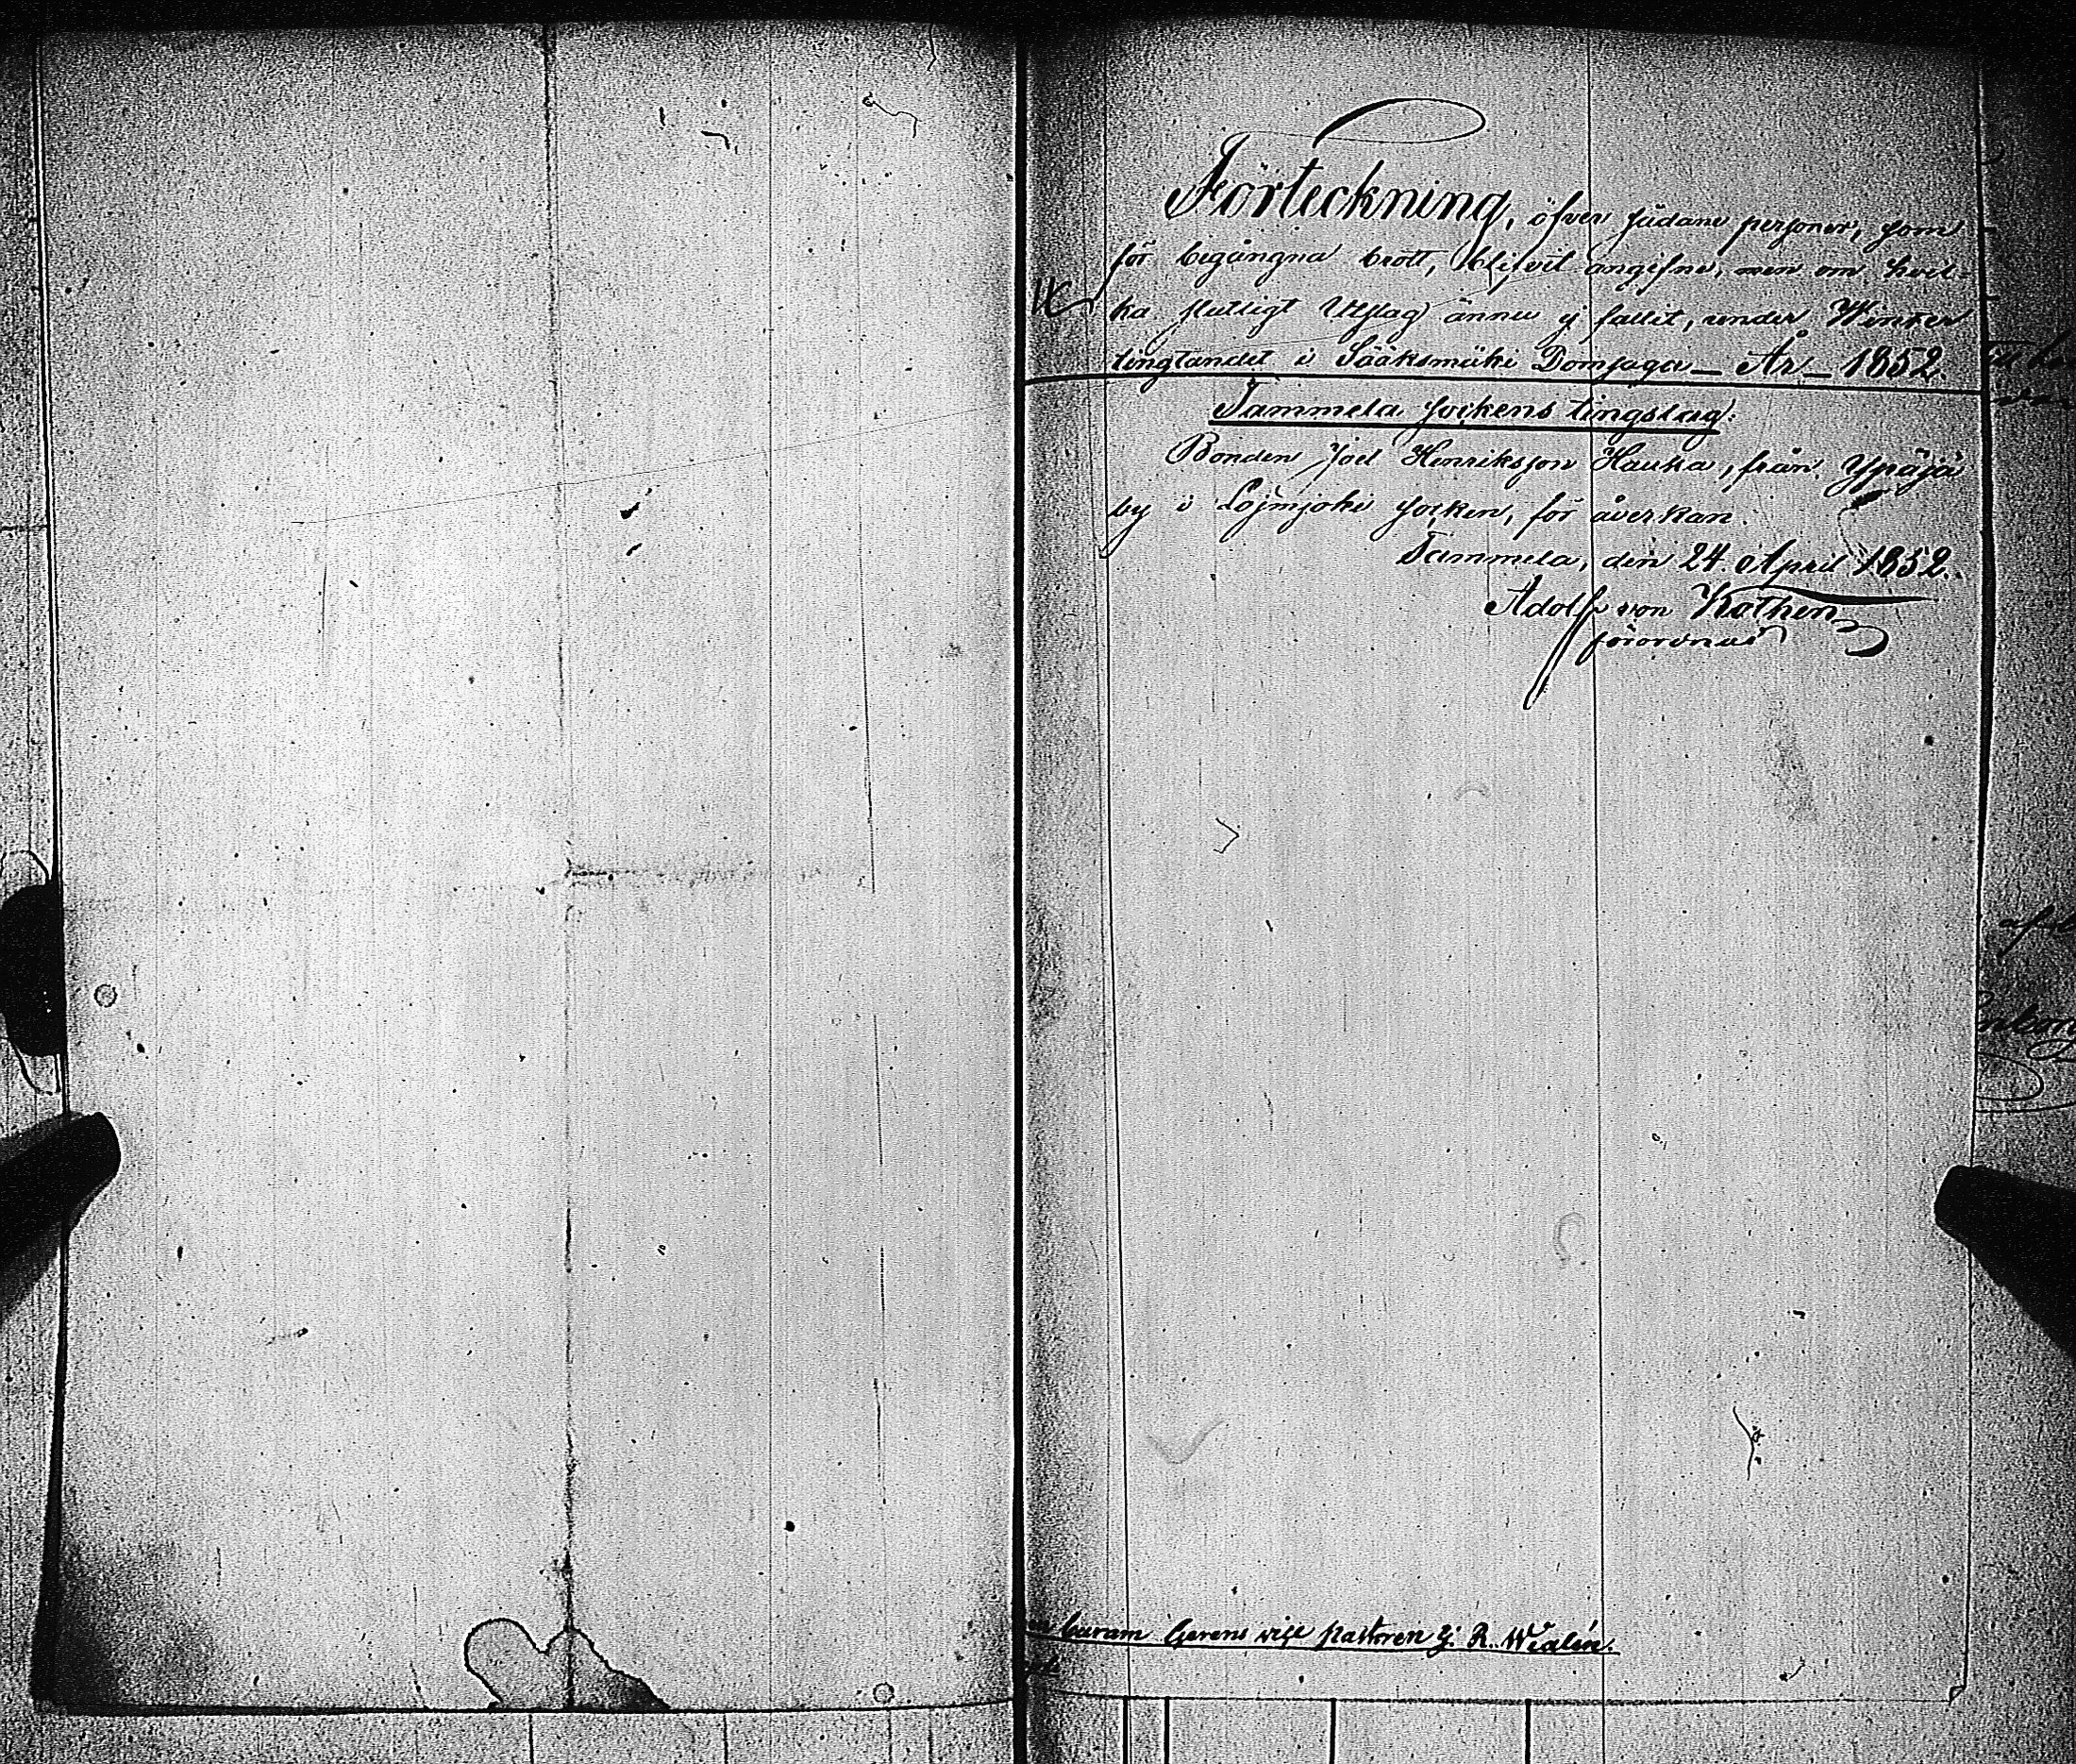 Förteckning, öfver sådane personer, som
för begångna brott, blifvit angifne, men om hvil-
ka slutligt Utslag ännu ej fallit, under Winter
tingtandet i Sääksmäki Domsaga – År – 1852.
Tammela sockens tingslag:
Bonden Joel Henriksson Hauka, från Ypäjä
by i Lojmjoki socken, för åverkan.
Tammela, den 24. April 1852.
Adolf von Kothen
förordnad
curam gerens vice pastoren J. R. Wealén.